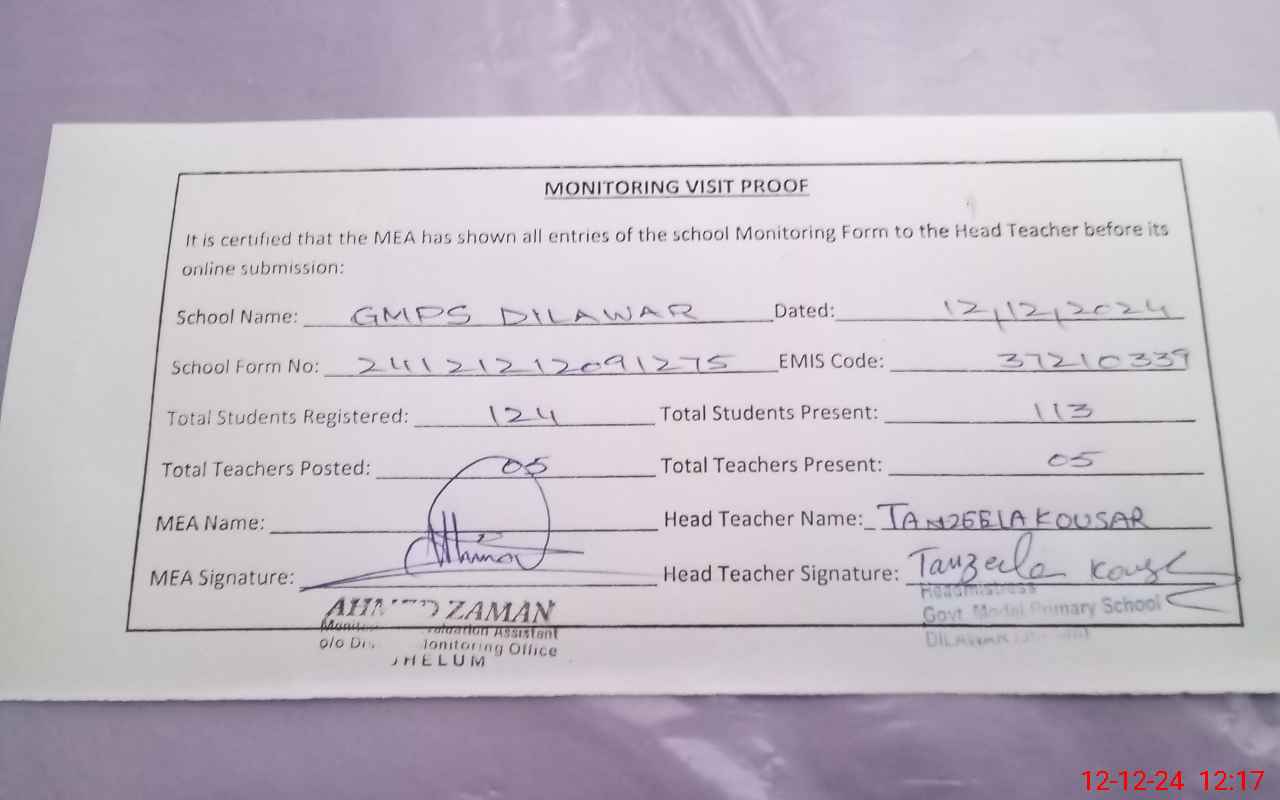 MONITORING VISIT PROOF
It is certified that the MEA has shown all entries of the school Monitoring Form to the Head Teacher before its
online submission:
School Name: GMPS DILAWAR Dated: 12,12,2024
School Form No: 24121212091275 EMIS Code: 37210339
Total Students Registered: 124 Total Students Present: 113
Total Teachers Posted: 05 Total Teachers Present: 05
MEA Name: Head Teacher Name: TANZEELA KOUSAR
MEA Signature: Head Teacher Signature: Tanzeela
AHMED ZAMAN Headmistress
Assistant Govt Model Primary School
o/o Monitoring Office DILAWAR
JHELUM
12-12-24 12:17